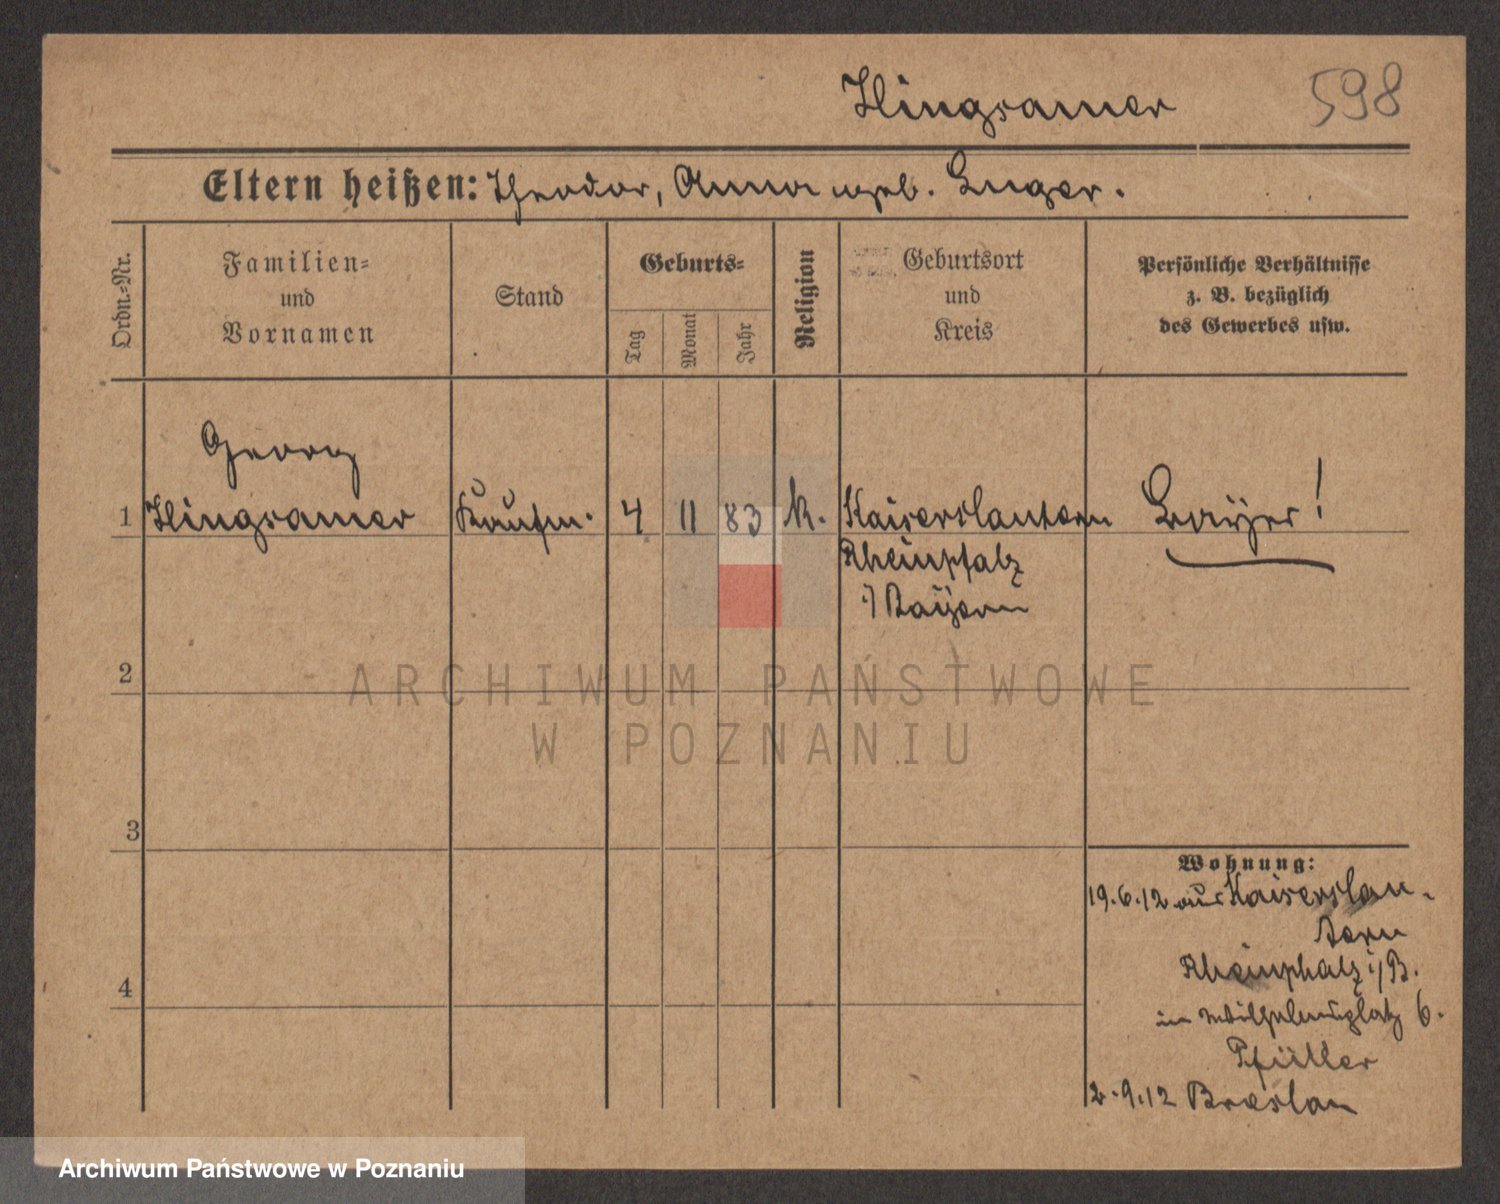 Klingsamer
598
Eltern heißen: Theodor, Anna geb. Luger.
Ordn.-Nr.
Familien-
und
Vornamen
Stand
Geburts-
Tag
Monat
Jahr
Religion
Geburtsort
und
Kreis
Persönliche Verhältnisse
z. B. bezüglich
des Gewerbes usw.
Georg
1 Klingsamer Kaufm. 4 11 83 k. Kaiserslautern Bayer!
Rheinpfalz
i/Bayern
2
3
4
Wohnung:
19.6.12 aus Kaiserslau-
tern
Rheinphalz i/B.
in Wilhelmsplatz 6.
2.9.12 Breslau
ARCHIWUM PAŃSTWOWE
W POZNANIU
Archiwum Państwowe w Poznaniu